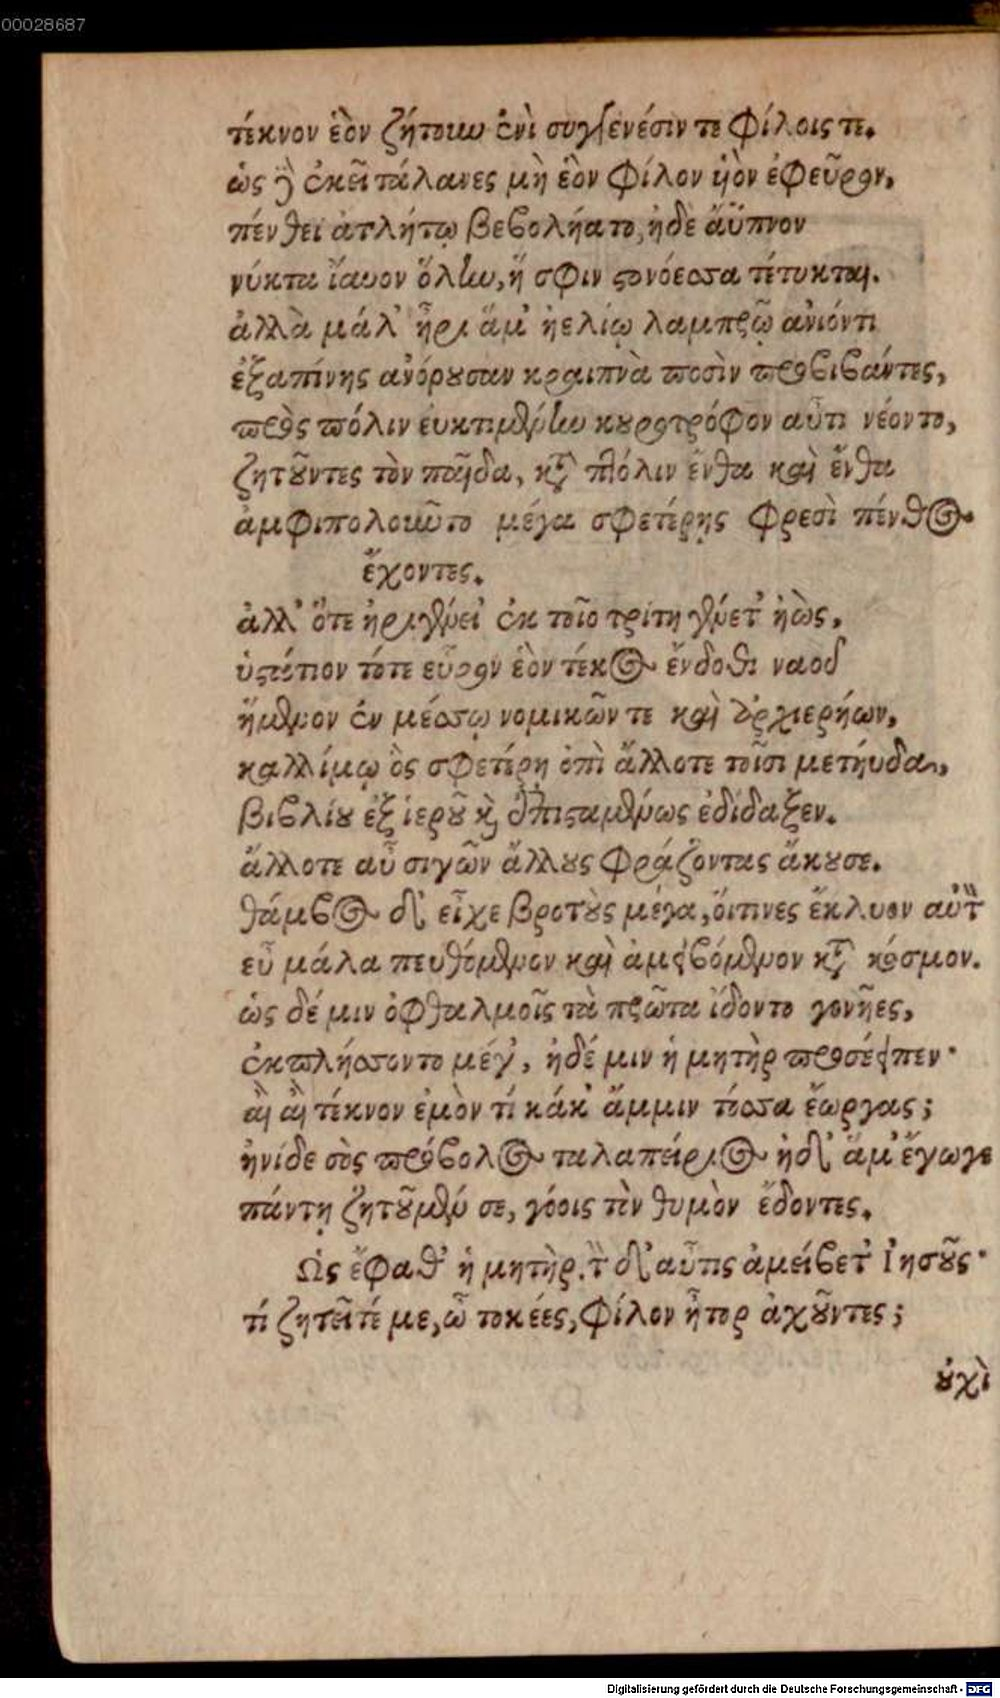 00028687
τέκνον ἑὸν ζήτουν ἐνὶ συγγενέσιν τε φίλοις τε.
ὡς δ᾽ ἐκεῖ τάλανες μὴ ἑὸν φίλον υἱὸν ἐφεῦρον,
πένθει ἀτλήτῳ βεβολήατο, ἠδὲ ἄϋπνον
νύκτα ἴαυον ὅλην, ἥ σφιν στονόεσσα τέτυκται.
ἀλλὰ μάλ᾽ ἦρι ἅμ᾽ ἠελίῳ λαμπρῷ ἀνιόντι
ἐξαπίνης ἀνόρυσαν κραιπνὰ ποσὶν προβιβάντες,
πρὸς πόλιν ἐυκτιμένην κουροτρόφον αὖτι νέοντο,
ζητοῦντες τὸν παῖδα, κατὰ πτόλιν ἔνθα καὶ ἔνθα
ἀμφιπολοιῶτο μέγα σφετέρῃς φρεσὶ πένθος
ἔχοντες.
ἀλλ᾽ ὅτε ἠριγένει᾽ ἐκ τοῖο τρίτη γένετ᾽ ἠὼς,
ὑστάτιον τότε εὗρον ἑὸν τέκος ἔνδοθι ναοῦ
ἥμενον ἐν μέσσῳ νομικῶν τε καὶ ἀρχιερήων,
καλλίμῳ ὃς σφετέρῃ ὀπὶ ἄλλοτε τοῖσι μετηύδα,
βιβλίου ἐξ ἱεροῦ καὶ ἐπισταμένως ἐδίδαξεν.
ἄλλοτε αὖ σιγῶν ἄλλους φράζοντας ἄκουσε.
θάμβος δ᾽ εἶχε βροτοὺς μέγα, ὅιτινες ἔκλυον αὐτοῦ
εὖ μάλα πευθόμενον καὶ ἀμειβόμενον κατὰ κόσμον.
ὡς δέ μιν ὀφθαλμοῖς τὰ πρῶτα ἴδοντο γονῆες,
ἐκπλήσσοντο μέγ᾽, ἠδέ μιν ἡ μητὴρ προσέειπεν·
αἲ αἲ τέκνον ἐμὸν τί κάκ᾽ ἄμμιν τόσσα ἔωργας;
ἠνίδε σὸς πρόβολος ταλαπείριος ἠδ᾽ ἅμ᾽ ἔγωγε
πάντῃ ζητοῦμέν σε, γόοις τὸν θυμὸν ἔδοντες.
Ὡς ἔφαθ᾽ ἡ μητὴρ. τὴν δ᾽ αὖτις ἀμείβετ᾽ Ἰησοῦς·
τί ζητεῖτέ με, ὦ τοκέες, φίλον ἦτορ ἀχοῦντες;
οὐχὶ
Digitalisierung gefördert durch die Deutsche Forschungsgemeinschaft - DFG